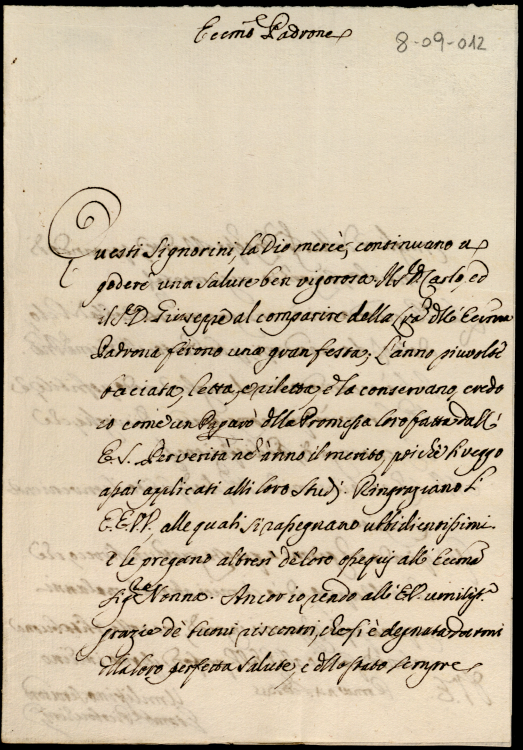 Eccmo Padrone
8-09-012
Questi Signorini, la Dio mercè, continuano a
godere una salute ben vigorosa. Il Sr D. Carlo, ed
il Sr D. Giuseppe al comparire della della Eccma
Padrona ferono una gran festa. L'anno piu volte
baciata, letta, e riletta, e la conservano, credo
io come un della Promessa loro fatta dall'
E. V. Per verità ne anno il merito, poichè li veggo
assai applicati alli loro studj. Ringraziano l'
E.E. V.V. alle quali si rassegnano ubbidientissimi
e le pregano altresì de loro ossequj alle Eccme
Sigre Nonne. Ancor io rendo all'E.V. umilisse
grazie de riscontri, che si è degnata darmi
della loro perfetta salute, e dello stato sempre